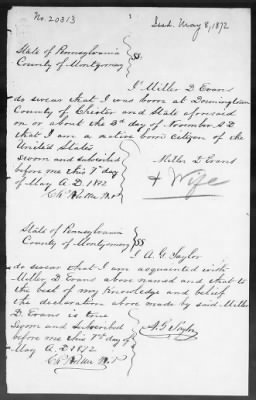 No. 20313
Issd. May 8, 1872
State of Pennsylvania
County of Montgomery } SS.
I, Miller D Evans
do swear that I was born at Downingtown
County of Chester and State aforesaid
on or about the 3d day of November A D
that I am a native born citizen of the
United States
Sworn and subscribed
before me this 7th day
of May A. D. 1872
Miller D Evans
+ Wife
State of Pennsylvania
County of Montgomery } SS
I A. G. Saylor
do swear that I am acquainted with
Miller D Evans above named and that to
the best of my knowledge and belief
the declaration above made by said Miller
D Evans is true
Sworn and subscribed
before me this 7th day of
May A. D. 1872
A. G Saylor